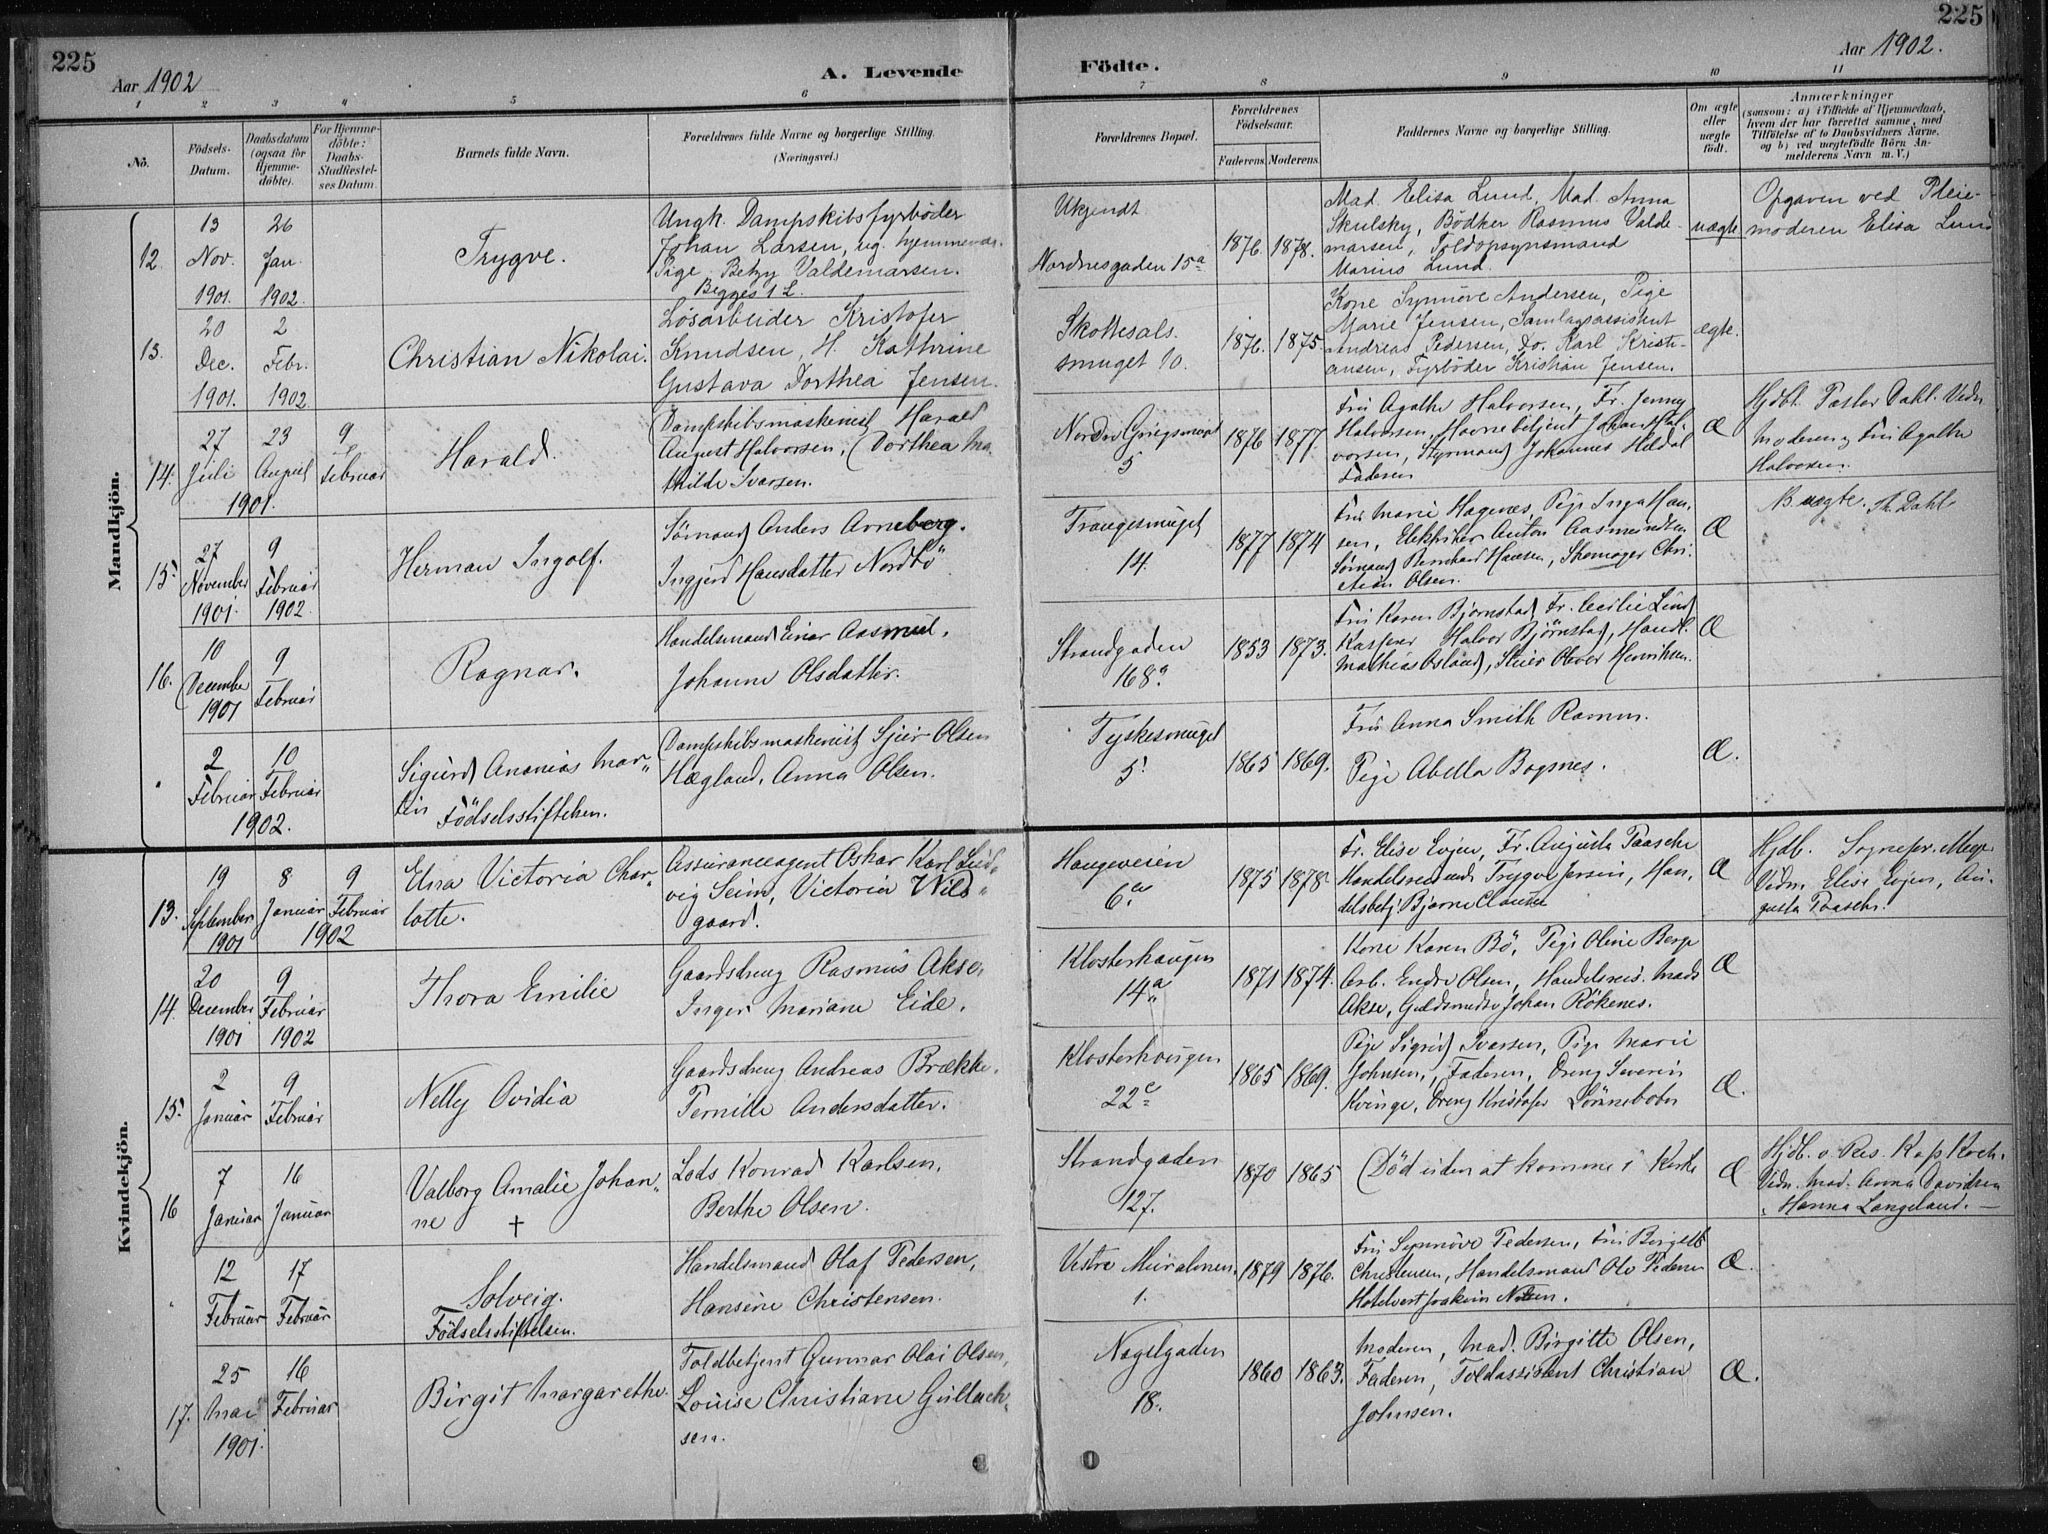 225
225
Aar 1902
A. Levende
Födte.
Aar 1902.
1 2 3 4 5 6 7 8 9 10 11
Nô.
Födsels-
Datum.
Daabsdatum
(ogsaa for
Hjemme-
döbte).
For Hjemme-
döbte:
Daabs-
Stadfæstel-
ses Datum.
Barnets fulde Navn.
Forældrenes fulde Navne og borgerlige Stilling.
(Næringsvei.)
Forældrenes Bopæl.
Forældrenes
Födselsaar.
Faderens. Moderens.
Faddernes Navne og borgerlige Stilling.
Om ægte
eller
uægte
födt.
Anmærkninger
(saasom: a) i Tilfælde af Hjemmedaab,
hvem der har forrettet samme, med
Tilföielse af to Daabsvidners Navne,
og b) ved uægtefödte Börn An-
melderens Navn m. V.)
Mandkjön.
12.
13
Nov.
1901.
26
Jan.
1902.
Trygve.
Ungk. Dampskibsfyrbøder
Johan Larsen, ug. hjemmevær.
Pige Betzy Valdemarsen.
Begges 1 L.
Ukjendt
Nordnesgaden 15a
1876. 1878.
Mad. Elisa Lund, Mad. Anna
Skulsky, Bödker Rasmus Valde-
marsen, Toldopsynsmand
Marius Lund.
uægte
Opgaven ved Pleie-
moderen Elisa Lund
13.
20
Dec.
1901.
2
Febr.
1902.
Christian Nikolai.
Løsarbeider Kristofer
Knudsen, H. Kathrine
Gustava Dorthea Jensen.
Skottesals.
smuget 10.
1876. 1875.
Kone Synnöve Andersen, Pige
Marie Jensen, Samlagsassistent
Andreas Pedersen, Do. Karl Kristi-
ansen, Fyrbøder Kristian Jensen.
ægte.
14.
27
Juli
23
August
1901.
9
Februar
Harald.
Dampskibsmaskinist Harald
August Halvorsen, Dorthea Ma-
thilde Ivarsen.
Nordre Griegsmoel
5
1876 1877.
Fru Agathe Halvorsen, Fr. Jenny
Halvorsen, Havnebetjent Johan Hal-
vorsen, Styrmand Johannes Hildal
Faderen
Æ
Hjdbt. Pastor Dahl. Vidn
Moderen, Fru Agathe
Halvorsen.
15.
27
November
1901.
9
Februar
1902.
Herman Ingolf.
Sømand Anders Arneberg.
Ingjerd Hansdatter Nordbö
Trangesmuget
14.
1877 1874
Fru Marie Hagenes, Pige Inga Han-
sen, Elektriker Anton Aasmundsen
Sømand Bernhard Hansen, Skomager Chri-
stian Olsen.
Æ
B. uægte. Th. Dahl
16.
10
December
1901
9
Februar
Ragnar.
Handelsmand Einar Aasmul.
Johanne Olsdatter.
Strandgaden
168a
1853 1873.
Fru Karen Bjørnstad, Fr. Cecilie Lund
Kasserer Halvor Bjørnstad, Handl.
Mathias Osland, Skier Oliver Henriksen.
Æ
2
Februar
10
Februar
1902.
Sigurd Ananias Mar-
tin
Födselsstiftelsen.
Dampskibsmaskinist Sjur Olsen
Hægland, Anna Olsen.
Tyskesmuget
5.
1865 1869.
Fru Anna Smith Ramm.
Pige Abella Bognes.
Æ.
Kvindekjön.
13.
19
September
1901
8
Januar
9
Februar
1902
Elna Victoria Char-
lotte.
Assuranceagent Oskar Karl Lud-
vig Seim, Victoria Wilds-
gaard.
Haugeveien
6a
1875 1878
Fr. Elise Evjen, Fr. Augusta Paasche
Handelsreisende Trygve Jersin, Han-
delsbetj. Bjarne Clausen
Æ
Hjdb. Sognepr. Meyer
Vidn. Elise Evjen, Au-
gusta Paasche.
14.
20
December
1901
9
Februar
1902
Thora Emilie
Gaardsdreng Rasmus Akse,
Inger Mariane Eide.
Klosterhaugen
14a
1871 1874.
Kone Karen Bö, Pige Oline Berge
Arb. Endre Olsen, Handelsreis. Mads
Akse, Guldsmedsv Johan Rökenes.
Æ
15.
2
Januar
9
Februar
Nelly Ovidia
Gaardsdreng Andreas Brække.
Pernille Andersdatter.
Klosterhaugen
22c
1865 1869.
Pige Sigrid Ivarsen, Pige Marie
Johnsen, Faderen, Dreng Severin
Kvinge, Dreng Kristofer Lönnebotn
Æ.
16
7
Januar
16
Januar
Valborg Amalie Johan-
ne +
Lods Konrad Karlsen,
Berthe Olsen.
Strandgaden
127.
1870 1865
(Død uden at komme i Kirke
Æ
Hjdb. v. Res. Kap. Koch.
Vidn. Mad. Anna Davidsen
, Hanna Langeland. —
12
Februar
17
Februar
Solveig.
Födselsstiftelsen.
Handelsmand Olaf Pedersen,
Hansine Christensen.
Vestre Muralmen.
1.
1879 1876.
Fru Synnöve Pedersen, Fru Birgitte
Christensen, Handelsmand Ole Pedersen
Hotelvert Joakim Nilsen.
Æ.
17.
25
Mai
1901.
16
Februar
Birgit Margarethe.
Toldbetjent Gunnar Olai Olsen,
Louise Christiane Gullach-
sen.
Nagelgaden
18.
1860 1863.
Moderen, Mad. Birgitte Olsen,
Faderen, Toldassistent Christian
Johnsen.
Æ.